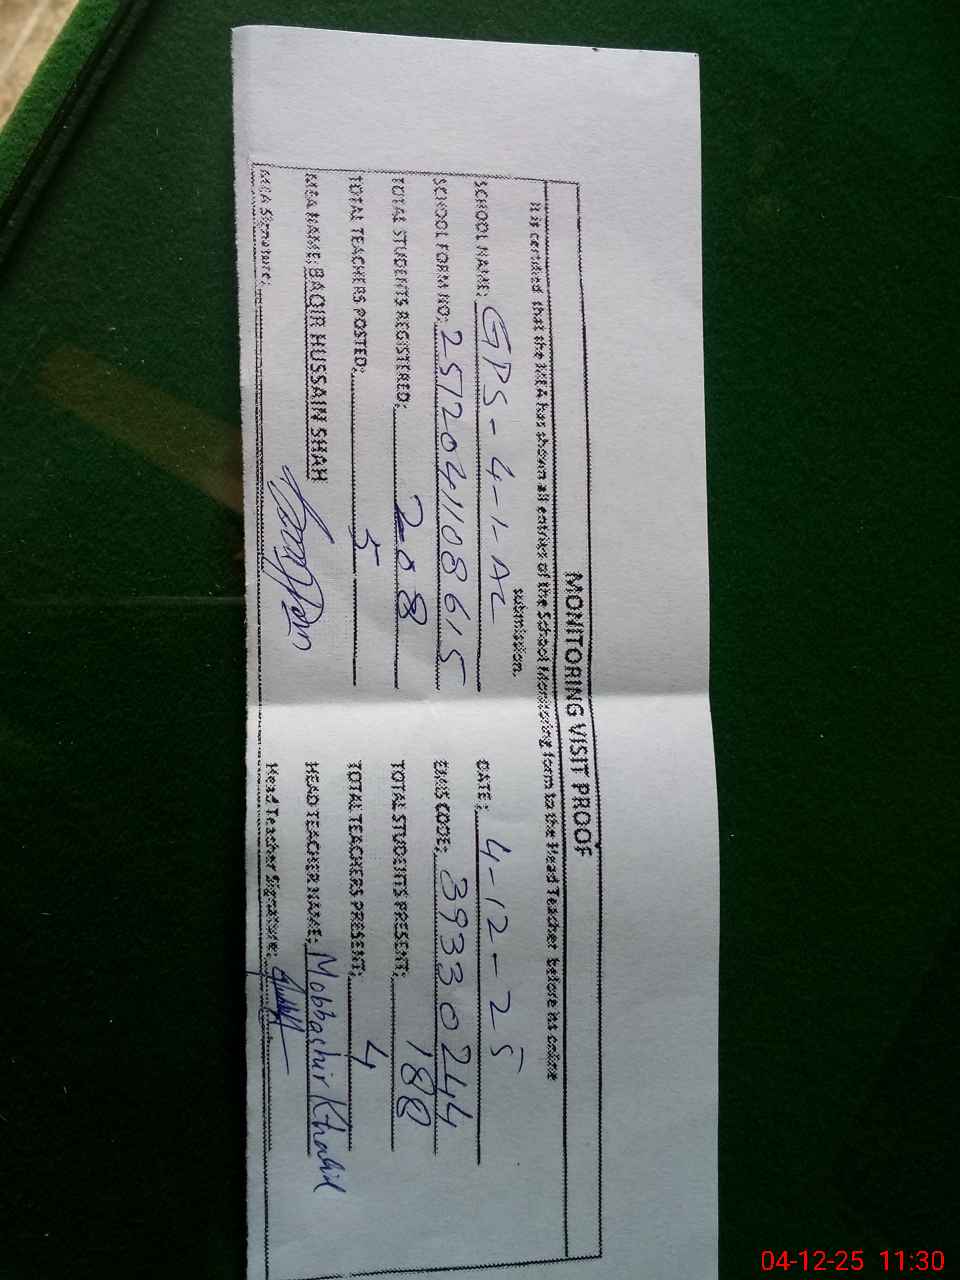 MONITORING VISIT PROOF
It is certified that the MEA has shown all entries of the School Monitoring form to the Head Teacher before its online
submission.
SCHOOL NAME: GPS-4-1-AL DATE: 4-12-25
SCHOOL FORM NO: 2512041108615 EMIS CODE: 39330244
TOTAL STUDENTS REGISTERED: 208 TOTAL STUDENTS PRESENT: 188
TOTAL TEACHERS POSTED: 5 TOTAL TEACHERS PRESENT: 4
MEA NAME: BAQIR HUSSAIN SHAH HEAD TEACHER NAME: Mobbashir Khalid
MEA Signature: Head Teacher Signature:
04-12-25 11:30